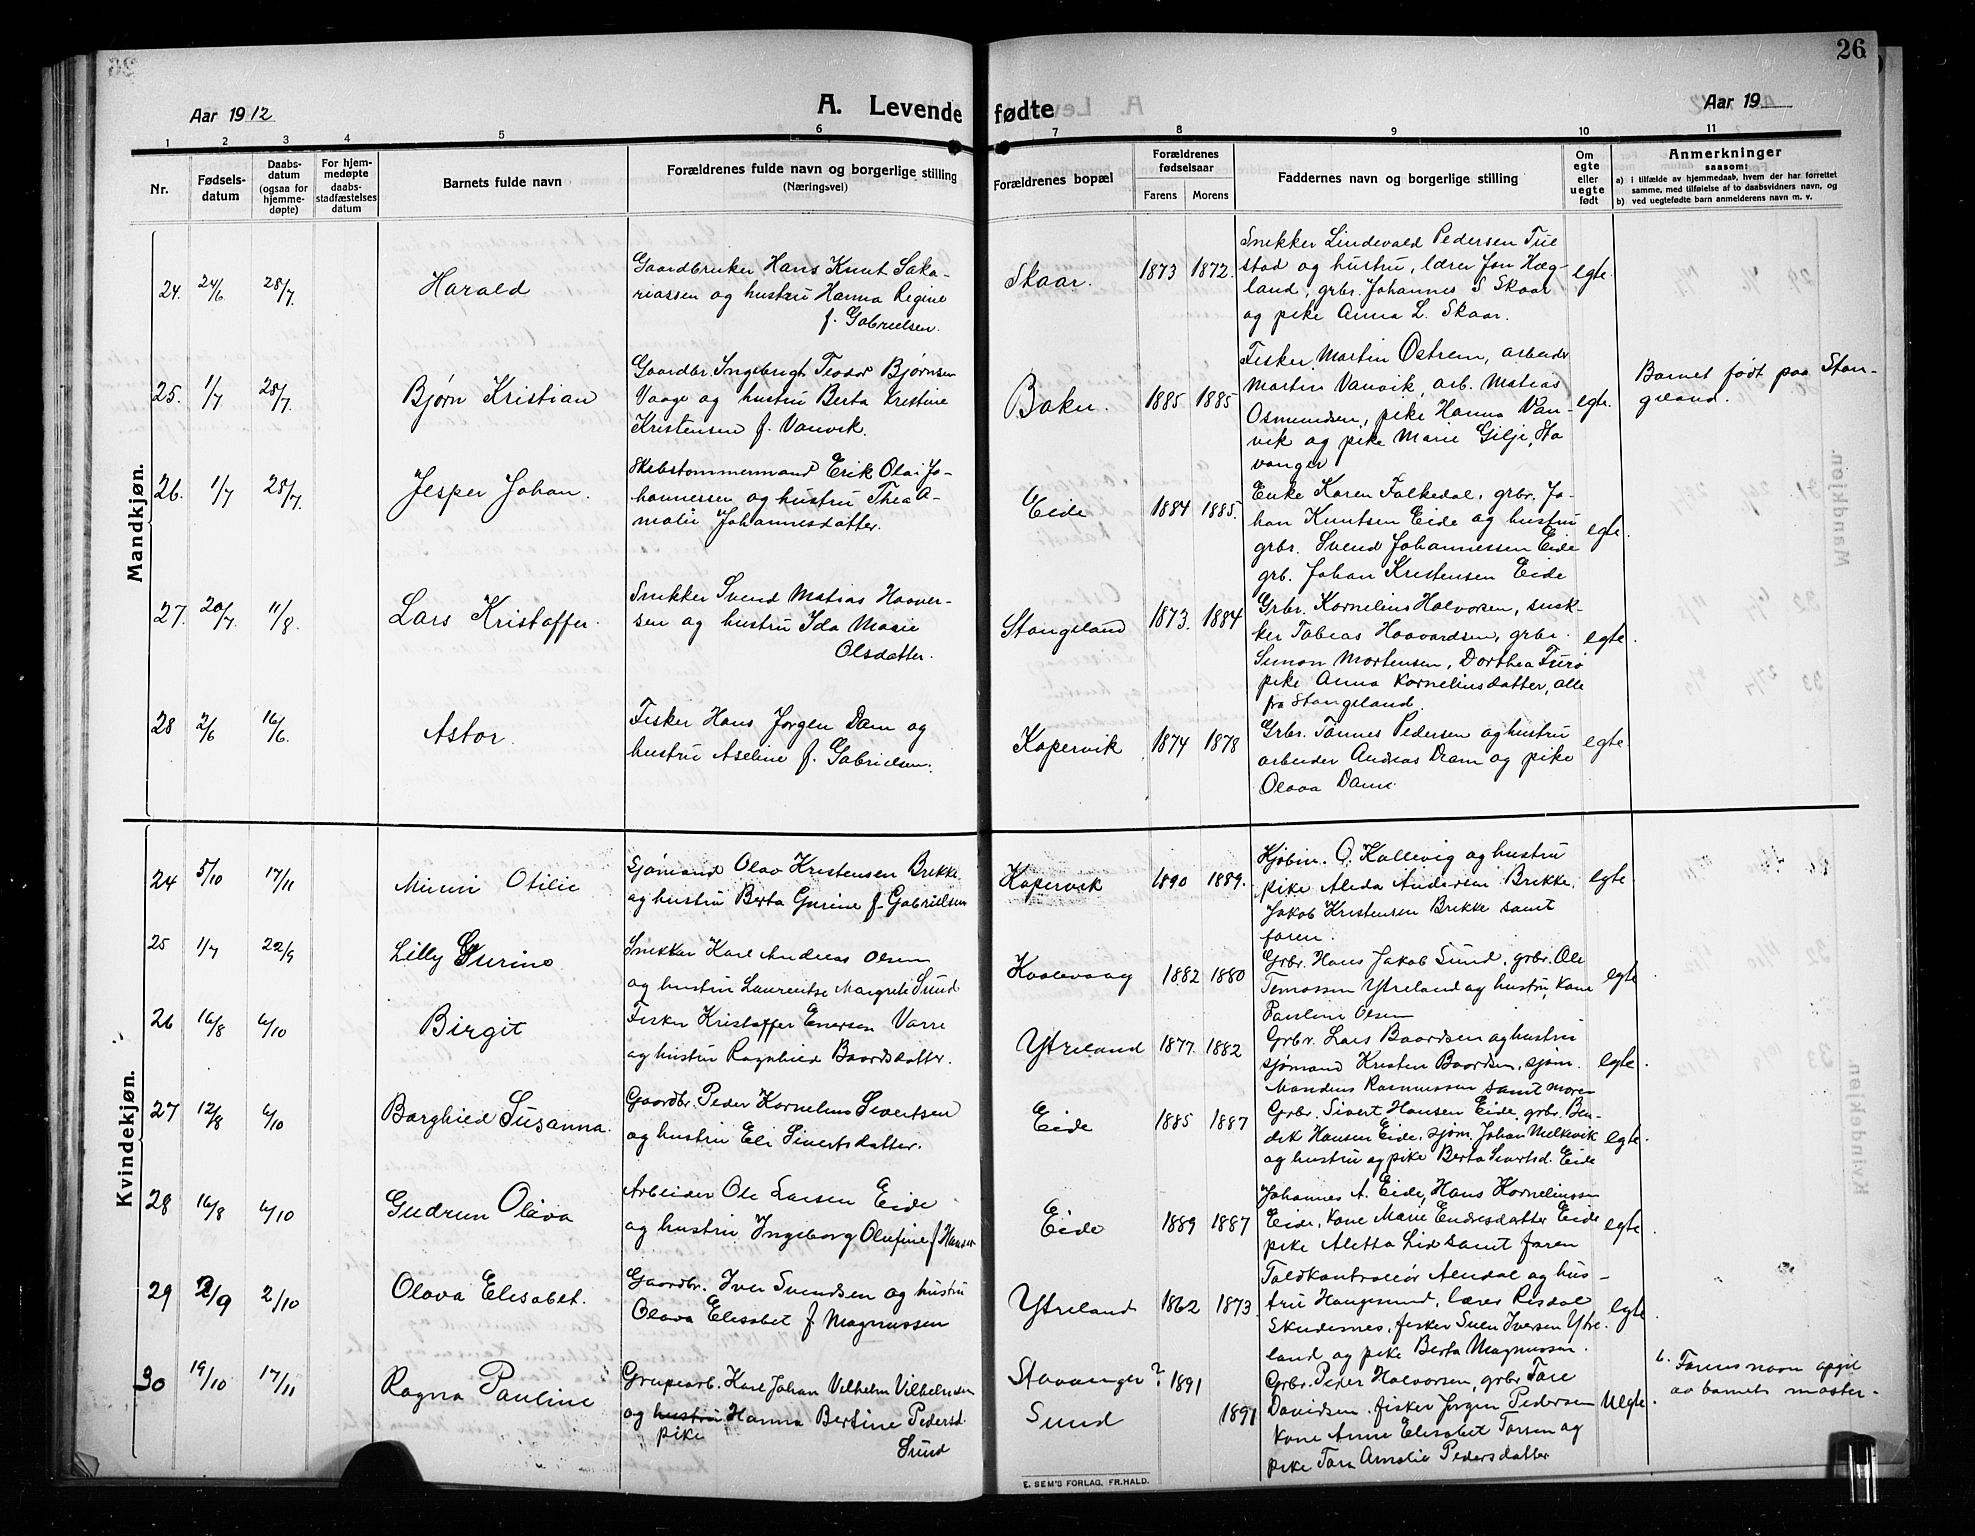 26
Aar 1912
A. Levende fødte
Aar 19
1 2 3 4 5 6 7 8 9 10 11
Nr.
Fødsels-
datum
Daabs-
datum
(ogsaa for
hjemme-
døpte)
For hjem-
medøpte
daabs-
stadfæstelses
datum
Barnets fulde navn
Forældrenes fulde navn og borgerlige stilling
(Næringsvei)
Forældrenes bopæl
Forældrenes
fødselsaar
Farens Morens
Faddernes navn og borgerlige stilling
Om
egte
eller
uegte
født
Anmerkninger
saasom:
a) i tilfælde av hjemmedaab, hvem der har forrettet
samme, med tilføielse af to daabsvidners navn, og
b) ved uegtefødte barn anmelderens navn m. v.
Mandkjøn.
24. 24/6 28/7 Harald
Gaardbruker Hans Knut Saka-
riassen og hustru Hanna Regine
f. Gabrielsen.
Skaar. 1873 1872.
Snekker Lindevald Pedersen Tue
stad og hustru, lærer Jon Hæg-
land, grbr. Johannes S Skaar
og pike Anna L. Skaar.
egte.
25. 1/7 28/7 Bjørn Kristian
Gaardbr. Ingebrigt Teodor Bjørnsen
Vaage og hustru Berta Kristine
Kristensen f. Vanvik.
Bokn. 1885 1885
Fisker Martin Østrem, arbeider
Martin Vanvik, arb. Matias
Osmundsen, pike Hanna Van-
vik og pike Marie Gilje, Sta
vanger
egte.
Barnet født paa Stan-
geland.
26. 1/7 28/7 Jesper Johan.
Skibstømmermand Erik Olai Jo-
hannessen og hustru Thea A-
malie Johannesdatter.
Eide 1884 1885.
Enke Karen Falkedal, grbr. Jo-
han Knutsen Eide og hustru
grbr. Svend Johannessen Eide
grb. Johan Kristensen Eide
egte.
27. 20/7. 11/8. Lars Kristoffer.
Snekker Svend Matias Haaver-
sen og hustru Ida Marie
Olsdatter.
Stangeland 1873. 1884
Grbr. Kornelius Halvorsen, snek-
ker Tobias Haavardsen, grbr.
Simon Mortensen, Dorthea
pike Anna Korneliusdatter, alle
fra Stangeland.
egte.
28 2/6 16/6. Astor.
Fisker Hans Jørgen Dam og
hustru Aseline f. Gabrielsen.
Kopervik 1874 1878
Grbr. Tønnes Pedersen og hustru
arbeider Andreas Dam og pike
Olava Dam.
egte.
Kvindekjøn.
24 5/10 17/11 Mimi Otilie
Sjømand Olav Kristensen Brekke
og hustru Berta Gurine f. Gabrielsen
Kopervik 1890 1889.
Kjøbm. O. Kallevig og hustru
pike Alida Andersen Brekke,
Jakob Kristensen Brekke samt
faren.
egte.
25 1/7 22/9 Lilly Gurine
Snekker Karl Andreas Olsen
og hustru Laurentse Margrete Sund
1882 1880
Grbr. Hans Jakob Sund, grbr. Ole
Tomassen Ytreland og hustru, kone
Pauline Olsen
egte
26 16/8 6/10 Birgit
Fisker Kristoffer Enersen Varre
og hustru Ragnhild Baardsdatter.
Ytreland 1877. 1882
Grbr. Lars Baardsen og hustru
sjømand Kristen Baardsen, sjøm.
Mandius Rasmussen samt moren
egte.
27 12/8 6/10 Borghild Susanna.
Gaardbr. Peder Kornelius Sivertsen
og hustru Eli Sivertsdatter.
Eide 1885 1887
Grbr. Sivert Hansen Eide, grbr. Ben-
dik Hansen Eide, sjøm. Johan Melkevik
og hustru og pike Berta Sivertsd. Eide
egte.
28 16/8 6/10 Gudrun Olava
Arbeider Ole Larsen Eide
og hustru Ingeborg Olufine f Hansen
Eide 1889 1887
Johannes A. Eide, Hans Kornelinssen
Eide, kone Marie Endresdatter Eide
pike Aletta Lid samt faren
egte.
29 2/9 2/10 Olava Elisabet.
Gaardbr. Iver Svendsen og hustru
Olava Elisabet f Magnussen
Ytreland 1862 1873
Toldkontrollør Alendal og hus-
tru Haugesund, lærer Risdal
Skudesnes, fisker Sven Iversen Ytre-
land og pike Berta Magnussen.
egte.
30 19/10 17/11 Ragna Pauline
Grupearb. Karl Johan Vilhelm Vilhelmsen
og hustru Hanna Bertine Pedersd.
pike Sund
Stavanger? 1891
Sund 1891
Grbr. Peder Halvorsen, grbr Tore
Davidsen, fisker Jørgen Pedersen
kone Anne Elisabet Torsen og
pike Tora Amalie Pedersdatter
Uegte.
b. Farens navn opgit
av barnets moster.
E. SEM'S FORLAG, FR.HALD.